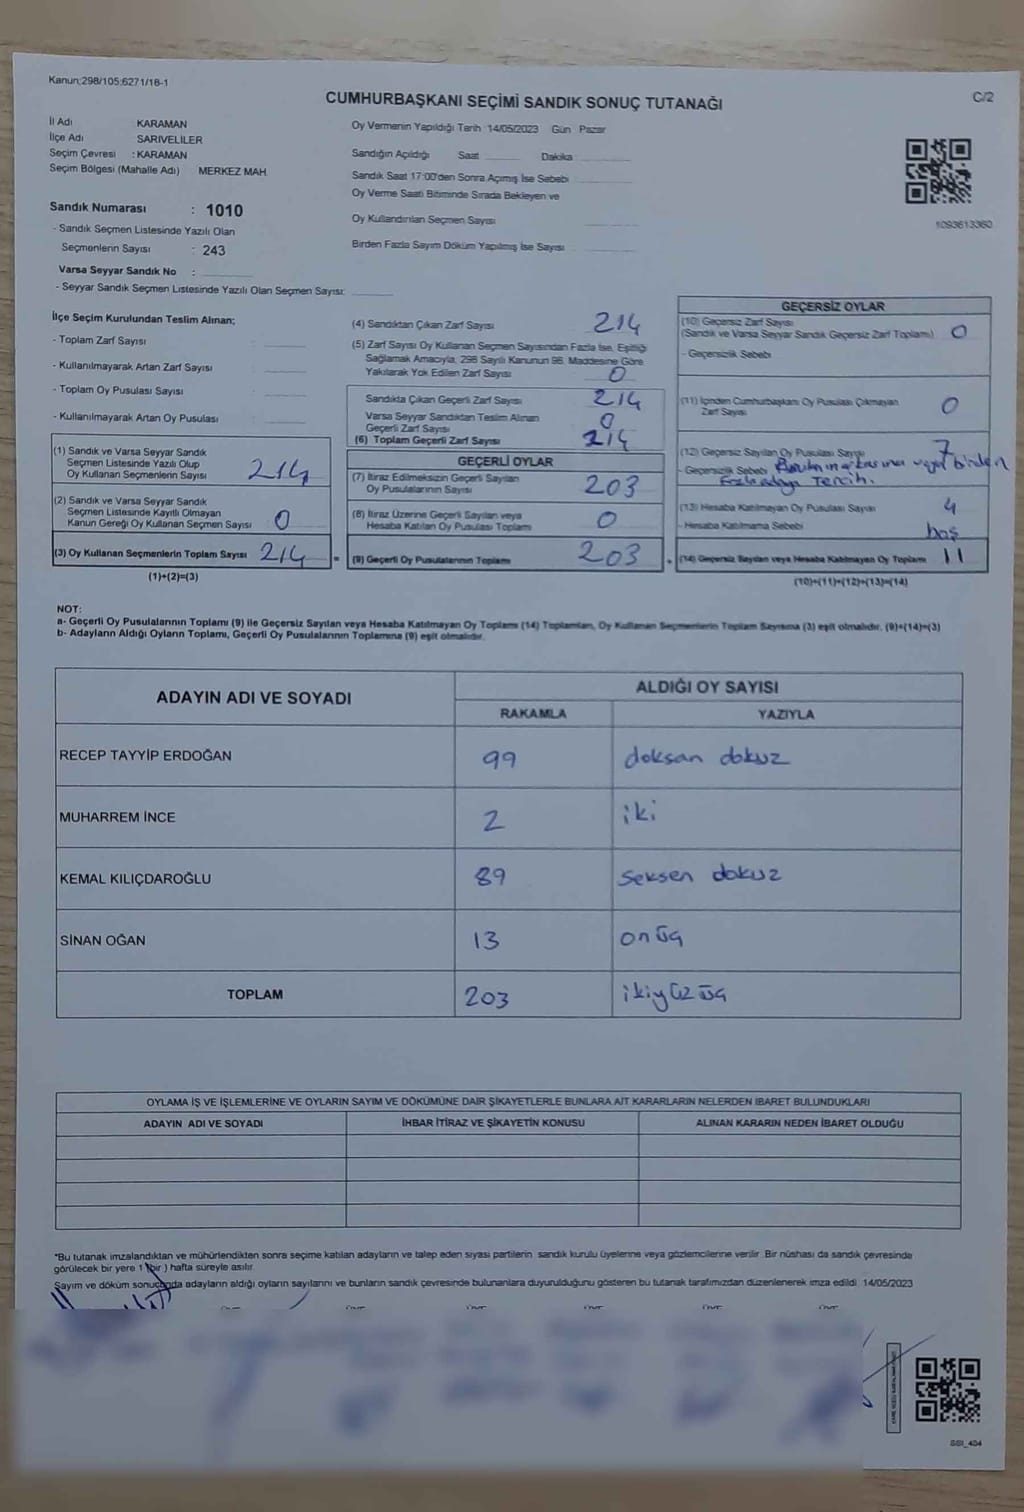 Kanun;298/105;6271/18-1
CUMHURBAŞKANI SEÇİMİ SANDIK SONUÇ TUTANAĞI
C/2
İl Adı KARAMAN
İlçe Adı SARIVELİLER
Seçim Çevresi : KARAMAN
Seçim Bölgesi (Mahalle Adı) MERKEZ MAH
Sandık Numarası : 1010
- Sandık Seçmen Listesinde Yazılı Olan
Seçmenlerin Sayısı : 243
Varsa Seyyar Sandık No :
- Seyyar Sandık Seçmen Listesinde Yazılı Olan Seçmen Sayısı:
Oy Vermenin Yapıldığı Tarih 14/05/2023 Gün Pazar
Sandığın Açıldığı Saat Dakika
Sandık Saat 17:00'den Sonra Açılmış İse Sebebi
Oy Verme Saati Bitiminde Sırada Bekleyen ve
Oy Kullandırılan Seçmen Sayısı
Birden Fazla Sayım Döküm Yapılmış İse Sayısı
1093613360
İlçe Seçim Kurulundan Teslim Alınan;
- Toplam Zarf Sayısı
- Kullanılmayarak Artan Zarf Sayısı
- Toplam Oy Pusulası Sayısı
- Kullanılmayarak Artan Oy Pusulası
(1) Sandık ve Varsa Seyyar Sandık
Seçmen Listesinde Yazılı Olup
Oy Kullanan Seçmenlerin Sayısı 214
(2) Sandık ve Varsa Seyyar Sandık
Seçmen Listesinde Kayıtlı Olmayan
Kanun Gereği Oy Kullanan Seçmen Sayısı 0
(3) Oy Kullanan Seçmenlerin Toplam Sayısı 214 =
(1)+(2)=(3)
(4) Sandıktan Çıkan Zarf Sayısı 214
(5) Zarf Sayısı Oy Kullanan Seçmen Sayısından Fazla İse, Eşitliği
Sağlamak Amacıyla, 298 Sayılı Kanunun 98. Maddesine Göre
Yakılarak Yok Edilen Zarf Sayısı 0
Sandıkta Çıkan Geçerli Zarf Sayısı 214
Varsa Seyyar Sandıktan Teslim Alınan
Geçerli Zarf Sayısı 0
(6) Toplam Geçerli Zarf Sayısı 214
GEÇERLİ OYLAR
(7) İtiraz Edilmeksizin Geçerli Sayılan
Oy Pusulalarının Sayısı 203
(8) İtiraz Üzerine Geçerli Sayılan veya
Hesaba Katılan Oy Pusulası Toplamı 0
(9) Geçerli Oy Pusulalarının Toplamı 203 +
GEÇERSİZ OYLAR
(10) Geçersiz Zarf Sayısı
(Sandık ve Varsa Seyyar Sandık Geçersiz Zarf Toplamı) 0
- Geçersizlik Sebebi
(11) İçinden Cumhurbaşkanı Oy Pusulası Çıkmayan
Zarf Sayısı 0
(12) Geçersiz Sayılan Oy Pusulası Sayısı 7
- Geçersizlik Sebebi veya birden
Fazla adaya Tercih.
(13) Hesaba Katılmayan Oy Pusulası Sayısı 4
- Hesaba Katılmama Sebebi boş
(14) Geçersiz Sayılan veya Hesaba Katılmayan Oy Toplamı 11
(10)+(11)+(12)+(13)=(14)
NOT:
a- Geçerli Oy Pusulalarının Toplamı (9) ile Geçersiz Sayılan veya Hesaba Katılmayan Oy Toplamı (14) Toplamları, Oy Kullanan Seçmenlerin Toplam Sayısına (3) eşit olmalıdır. (9)+(14)=(3)
b- Adayların Aldığı Oyların Toplamı, Geçerli Oy Pusulalarının Toplamına (9) eşit olmalıdır.
ADAYIN ADI VE SOYADI ALDIĞI OY SAYISI
RAKAMLA YAZIYLA
RECEP TAYYİP ERDOĞAN 99 doksan dokuz
MUHARREM İNCE 2 iki
KEMAL KILIÇDAROĞLU 89 seksen dokuz
SİNAN OĞAN 13 onüç
TOPLAM 203 ikiyüzüç
OYLAMA İŞ VE İŞLEMLERİNE VE OYLARIN SAYIM VE DÖKÜMÜNE DAİR ŞİKAYETLERLE BUNLARA AİT KARARLARIN NELERDEN İBARET BULUNDUKLARI
ADAYIN ADI VE SOYADI İHBAR İTİRAZ VE ŞİKAYETİN KONUSU ALINAN KARARIN NEDEN İBARET OLDUĞU
*Bu tutanak imzalandıktan ve mühürlendikten sonra seçime katılan adayların ve talep eden siyasi partilerin sandık kurulu üyelerine veya gözlemcilerine verilir. Bir nüshası da sandık çevresinde
görülecek bir yere 1 (bir) hafta süreyle asılır.
Sayım ve döküm sonucunda adayların aldığı oyların sayılarını ve bunların sandık çevresinde bulunanlara duyurulduğunu gösteren bu tutanak tarafımızdan düzenlenerek imza edildi. 14/05/2023
SSI_404